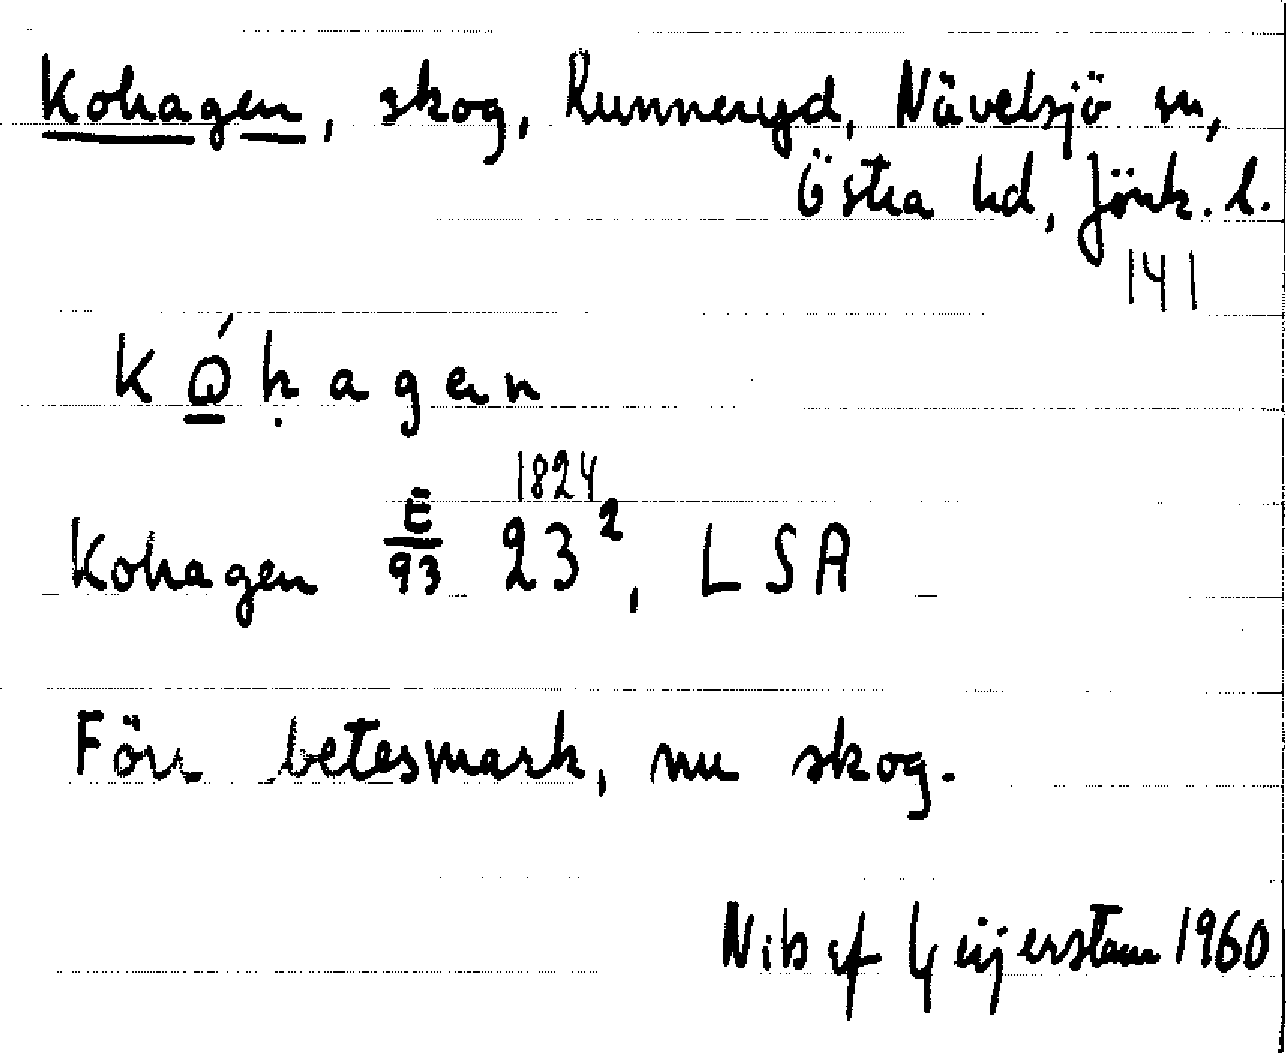 Kohagen, skog, Runneryd, Nävelsjö sn,
Östra hd, Jönk. l.
141
kǫ́ḥagen
1824
Kohagen E/93 23², LSA
Förr betesmark, nu skog.
Nils af Geijerstam 1960